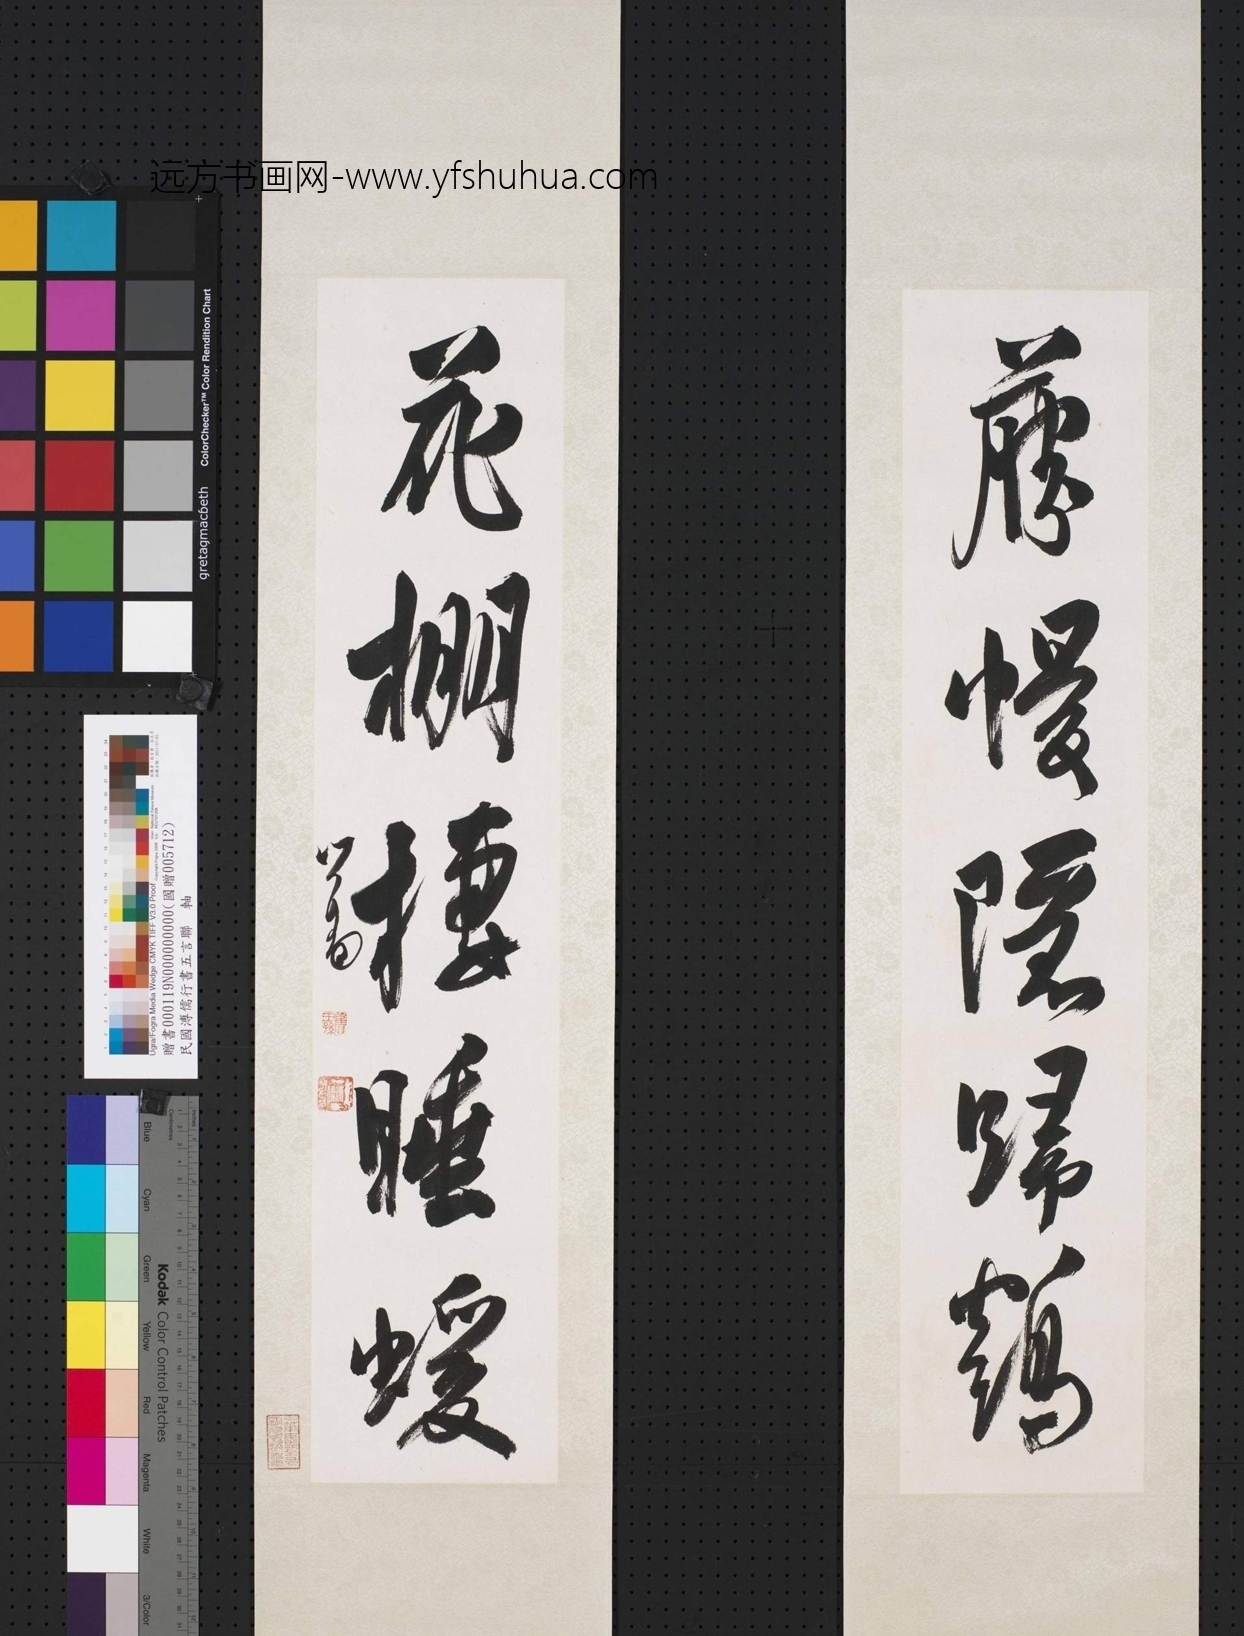 远方书画网-www.yfshuhua.com
藤幔隱歸
花棚棲睡蝯
心畬
ColorChecker™ Color Rendition Chart
gretagmacbeth
Ugra/Fogra Media Wedge CMYK TIFF V3.0 Proof
贈書000119N000000000(國贈005712)
民國溥儒行書五言聯 軸
Kodak Color Control Patches
Blue
Cyan
Green
Yellow
Red
Magenta
White
3/Color